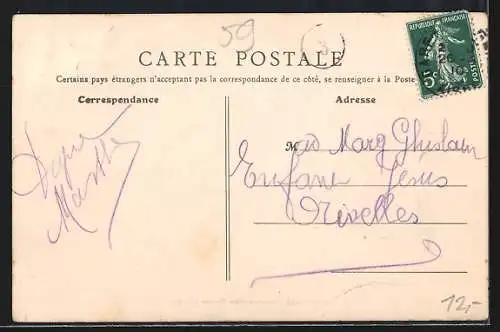 59
3
CARTE POSTALE
Certains pays étrangers n'acceptant pas la correspondance de ce côté, se renseigner à la Poste
Correspondance
Adresse
REPUBLIQUE FRANÇAISE
5c
POSTES
10
M Marg Ghislain
Enfant Jésus
Nivelles
12,-